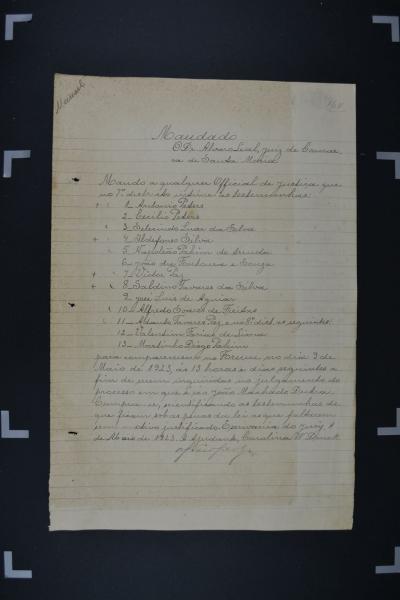 Mandado
O Dr. Alvaro Leal, Juiz de Comar
ca de Santa Maria.
Mando a qualquer Official de Justiça que
no 7º districto intime as testemunhas:
1_ Antonio Peters
2_ Cecilio Peters
3_ Luar da Silva
4_ Ildefonso Silva
5_ Napoleão Pahim de Arruda
6_ João da Fontoura e Souza
7_ Victor Paz
8_ Saldino Tavares da Silva
9_ José Luis de Aguiar
10_ Alfredo Soares de Freitas
11_ Tavares Paz, e no dist. as seguintes:
12_ Valentim Farias de Lima
13_ Martinho Diogo Pahim
para comparecerem no Forum no dia 9 de
Maio de 1923, ás 13 horas e dias seguintes a
fim de serem inquiridas no julgamento do
processo em que é réo João Machado
Cumpra-se, scientificando as testemunhas de
que ficam sob as penas da lei as que faltarem
sem motivo justificado. do Jury,
de Maio de 1923. O Ajudante, Carolina W.